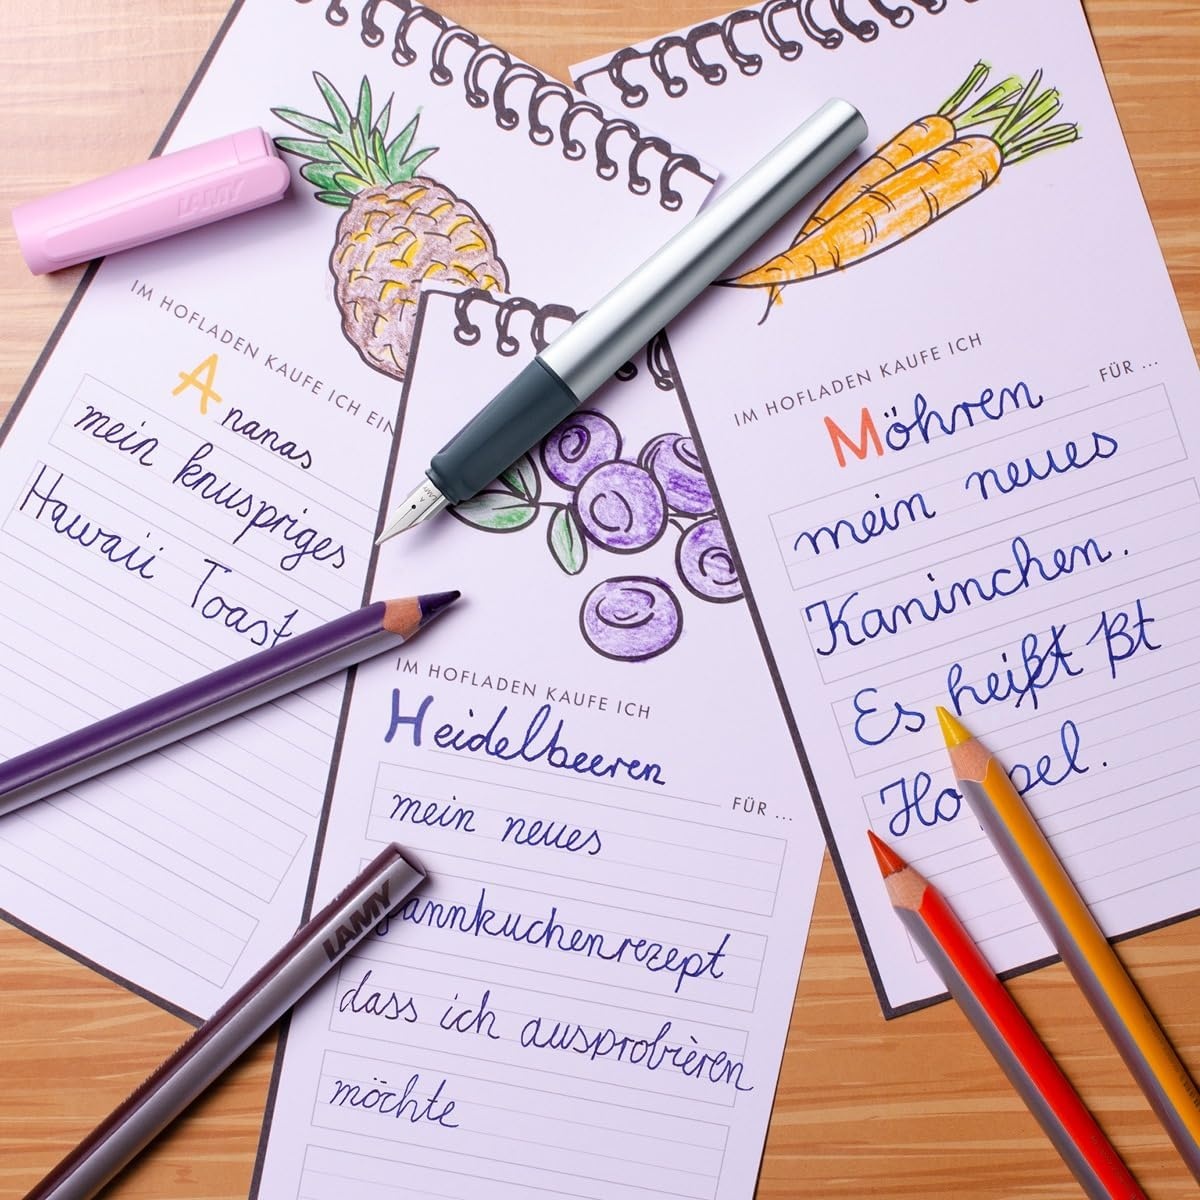 LAMY
IM HOFLADEN KAUFE ICH EIN
Ananas
mein knuspriges
Hawaii Toast
LAMY
IM HOFLADEN KAUFE ICH
Heidelbeeren
FÜR ...
mein neues
annkuchenrezept
dass ich ausprobieren
möchte
LAMY
IM HOFLADEN KAUFE ICH
Möhren
FÜR ...
mein neues
Kaninchen.
Es heißt ßt
Ho pel.